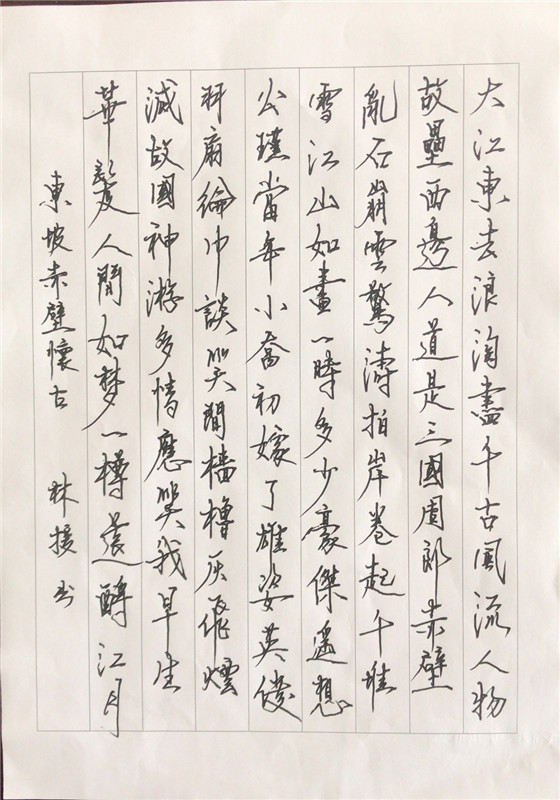 大江東去浪淘盡千古風流人物
故壘西邊人道是三國周郎赤壁
亂石崩雲驚濤拍岸卷起千堆
雪江山如畫一時多少豪傑遙想
公瑾當年小喬初嫁了雄姿英發
羽扇綸巾談笑間檣櫓灰飛煙
滅故國神游多情應笑我早生
華髮人間如梦一樽還酹江月
東坡赤壁懷古 林接书